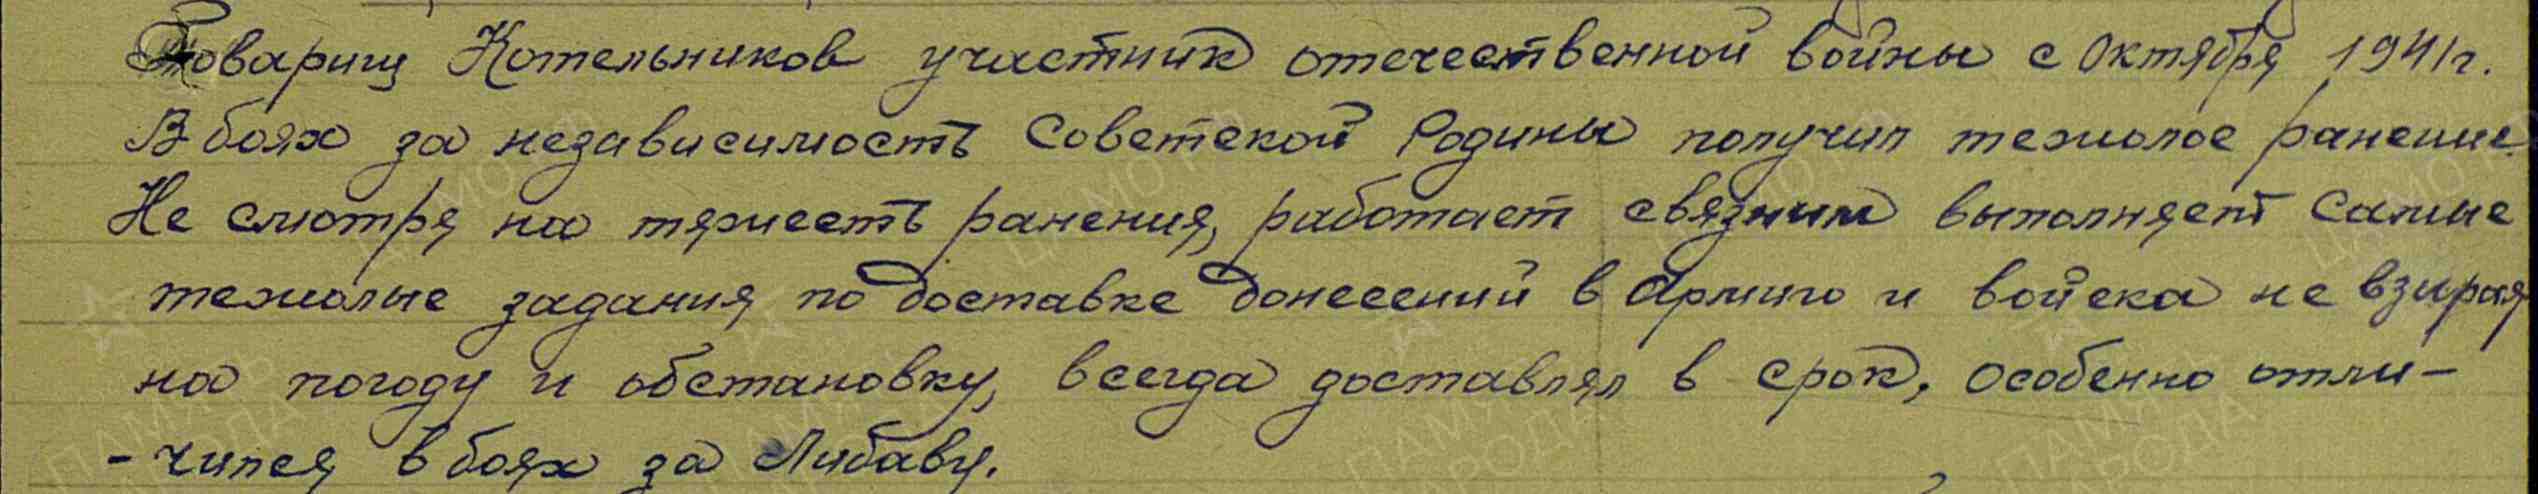 Товарищ Котельников участник отечественной войны с Октября 1941г.
В боях за независимость Советской Родины получил тежолое ранение.
Не смотря на тяжесть ранения, работает связным выполняет самые
тежолые задания по доставке донесений в Армию и войска не взирая
на погоду и обстановку, всегда доставлял в срок, особенно отли-
-чился в боях за Либаву.